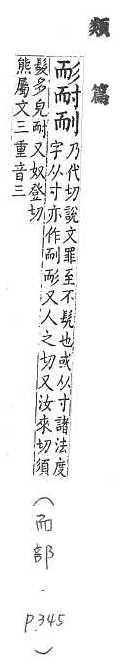 類篇
耏耐耏 乃代切說文罪不至髡也或从寸諸法度
字从寸亦作耐耏又人之切又汝來切須
髮多皃耐又奴登切
熊屬文三重音三
（而部．p.345）